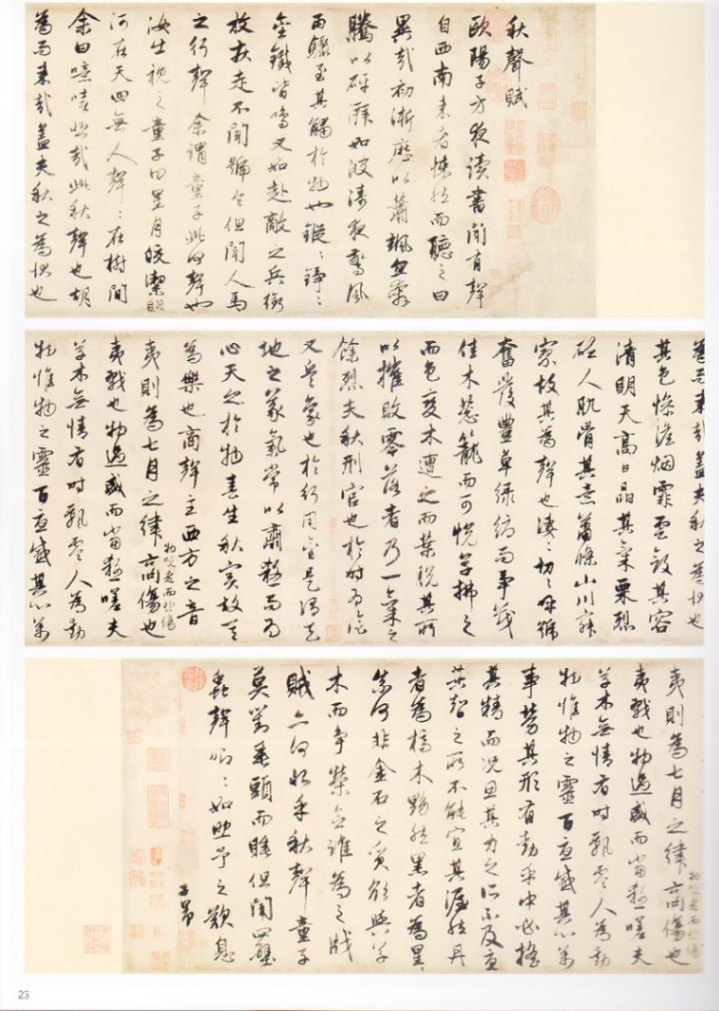 秋聲賦
歐陽子方夜讀書聞有聲
自西南来者悚然而聽之曰
異哉初淅瀝以蕭颯忽奔
騰以砰湃如波濤夜驚風
雨驟至其觸於物也鏦〻錚〻
金鐵皆鳴又如赴敵之兵銜
枚疾走不聞號令但聞人馬
之行聲余謂童子此何聲也
汝出視之童子曰星月皎潔明
河在天四無人聲〻在樹間
余曰噫嘻悲哉此秋聲也胡
為而来哉蓋夫秋之為狀也
為而来哉蓋夫秋之為狀也
其色慘淡烟霏雲斂其容
清明天高日晶其氣栗烈
砭人肌骨其意蕭條山川寂
寥故其為聲也淒〻切〻呼號
奮發豐草綠縟而爭茂
佳木葱籠而可悅草拂之
而色變木遭之而葉脫其所
以摧敗零落者乃一氣之
餘烈夫秋刑官也於時為陰
又兵象也於行用金是謂天
地之義氣常以肅殺而為
心天之於物春生秋實故其
為樂也商聲主西方之音
夷則為七月之律商傷也
物既老而悲傷
夷戮也物過盛而當殺嗟夫
草木無情有時飄零人為動
物惟物之靈百憂感其心萬
夷則為七月之律商傷也
物既老而悲傷
夷戮也物過盛而當殺嗟夫
草木無情有時飄零人為動
物惟物之靈百憂感其心萬
事勞其形有動乎中必搖
其精而況思其力之所不及憂
其智之所不能宜其渥然丹
者為槁木黟然黑者為星〻
奈何非金石之質欲與草
木而爭榮念誰為之戕
賊亦何恨乎秋聲童子
莫對垂頭而睡但聞四壁
蟲聲唧〻如助予之歎息
子昂
23